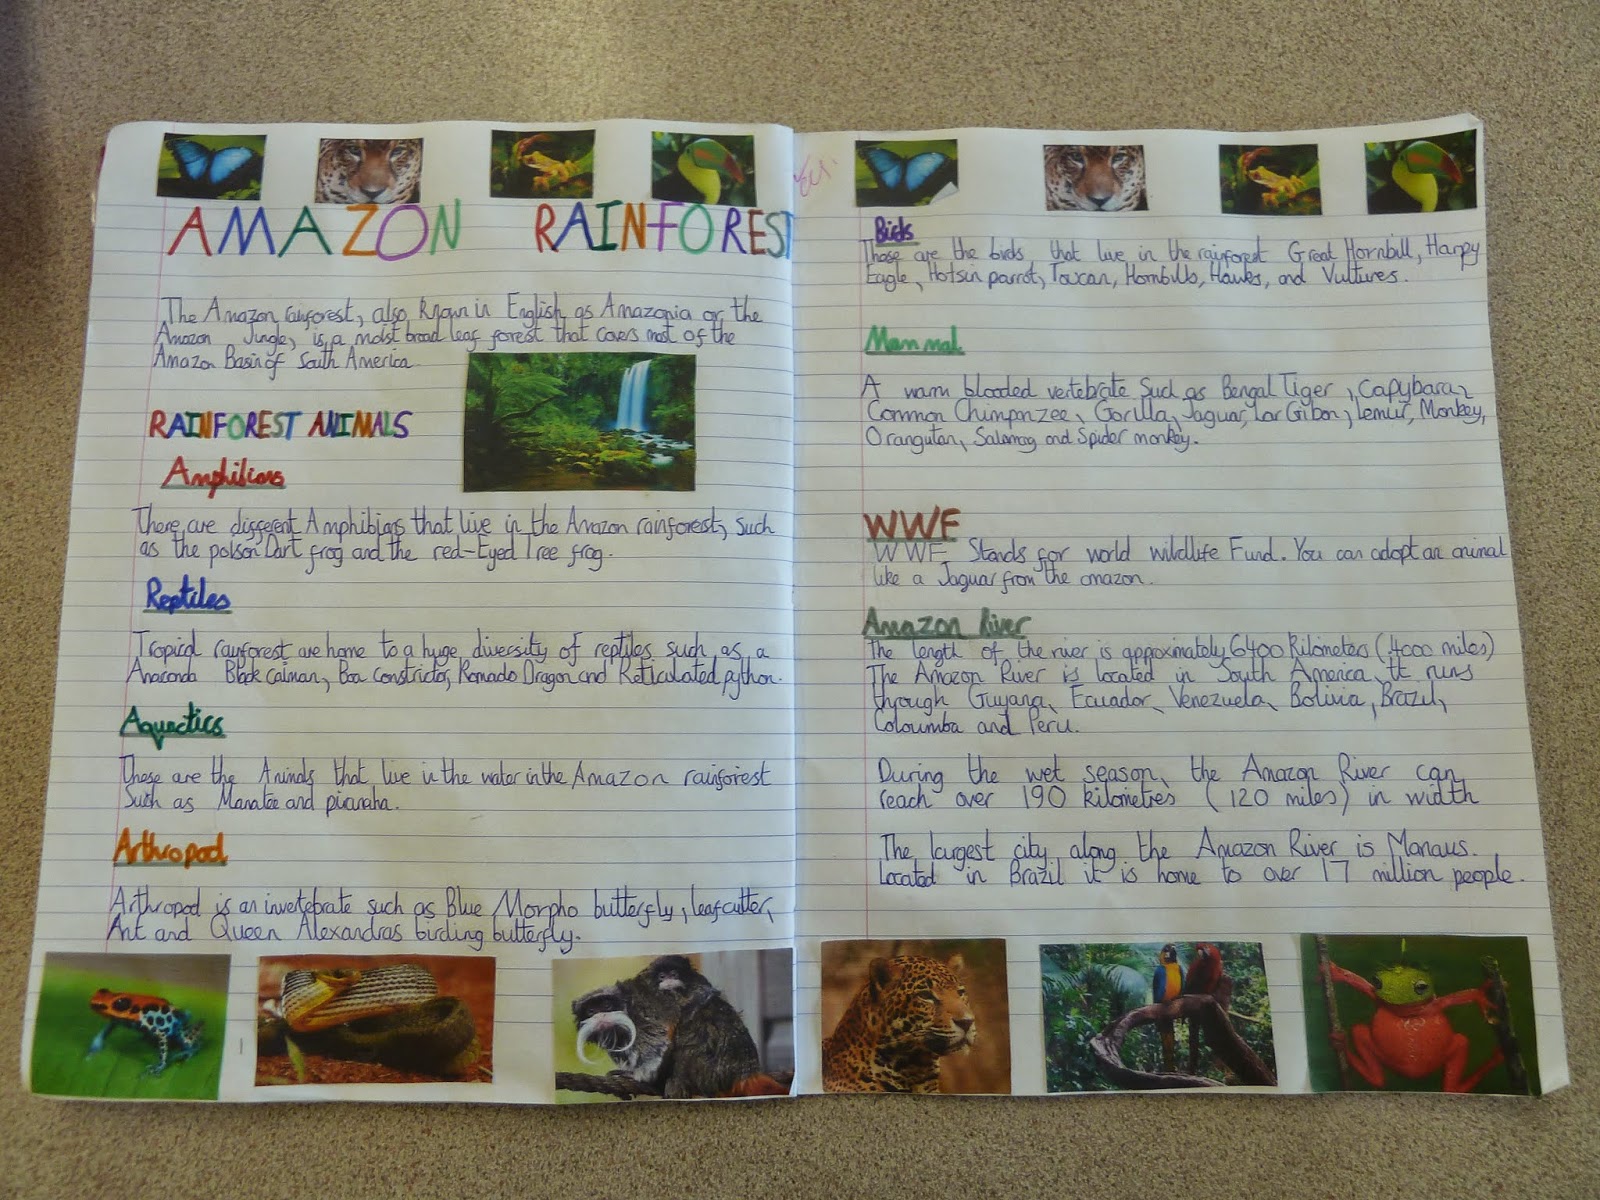 AMAZON RAINFOREST
The Amazon rainforest, also known in English as Amazonia or the
Amazon Jungle, is a moist broad leaf forest that covers most of the
Amazon Basin of South America.
RAINFOREST ANIMALS
Amphibians
There are different Amphibians that live in the Amazon rainforest, such
as the poison Dart frog and the red-Eyed Tree frog.
Reptiles
Tropical rainforest are home to a huge diversity of reptiles such as a
Anaconda Black caiman, Boa constrictor, Komado Dragon and Reticulated python.
Aquactics
These are the Animals that live in the water in the Amazon rainforest
Such as Manatee and piranaha.
Arthropod
Arthropod is an invertebrate such as Blue Morpho butterfly, leafcutter,
Ant and Queen Alexandras birding butterfly.
Birds
These are the birds that live in the rainforest Great Hornbill, Harpy
Eagle, Hotsin parrot, Toucan, Hornbills, Hawks, and Vultures.
Mammal
A warm blooded vertebrate Such as Bengal Tiger, Capybara,
Common Chimpnzee, Gorilla, Jaguar, Lar Gibon, Lemur, Monkey,
Orangutan, and Spider monkey.
WWF
WWF Stands for world wildlife Fund. You can adopt an animal
like a Jaguar from the amazon.
Amazon River
The length of the river is appoximately 6400 kilometers (4000 miles)
The Amazon River is located in South America it runs
through Guyana, Ecuador, Venezuela, Bolivia, Brazil,
Coloumba and Peru.
During the wet season, the Amazon River can
reach over 190 kilometres (120 miles) in width
The largest city along the Amazon River is Manaus.
Located in Brazil it is home to over 17 million people.